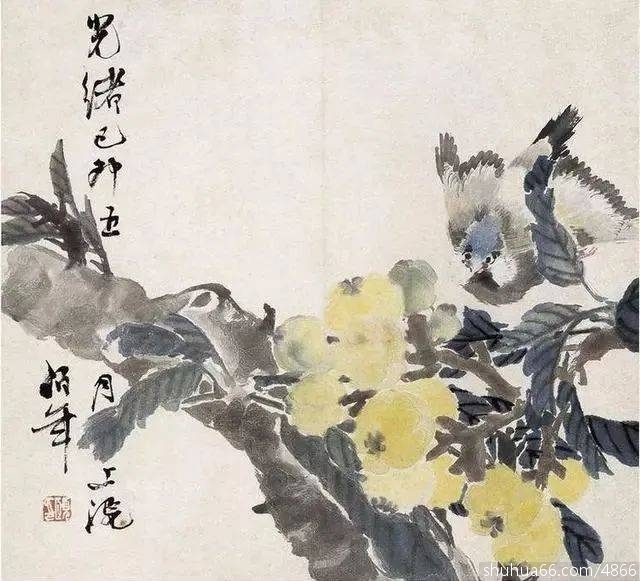 光緒己卯五月上浣
伯年
shuhua66.com/4866